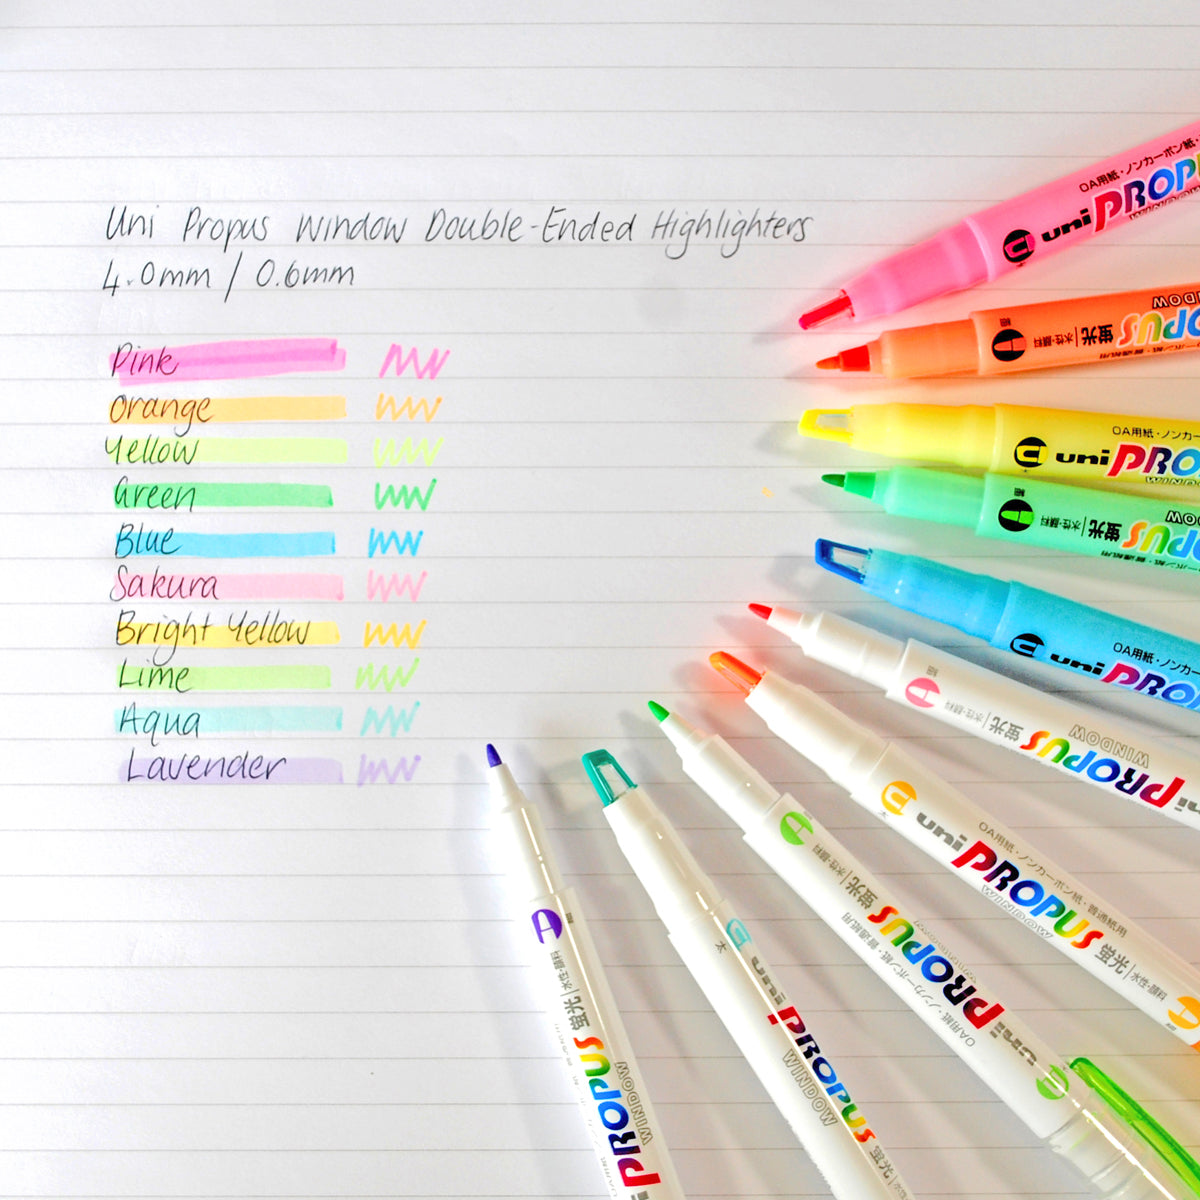 Uni Propus Window Double-Ended Highlighters
4.0mm / 0.6mm
Pink
Orange
Yellow
Green
Blue
Sakura
Bright Yellow
Lime
Aqua
Lavender
OA用紙・ノンカーボン紙・
uni PROPU
WINDOW
細 水性・顔料 蛍光 PROPUS
OA用紙・ノンカー
uni PRO
WINDOW
細 水性・顔料 蛍光 PUS
OA用紙・ノンカー
uni PRO
細 水性・顔料 蛍光 PROPUS
WINDOW
太 uni PROPUS 蛍光 水性・顔料
WINDOW
OA用紙・ノンカーボン紙・普通紙用
水性・顔料 蛍光 PROPUS uni
OA用紙・ノンカーボン紙・普通紙用
太 uni PROPUS 蛍光
WINDOW
細 水性・顔料 蛍光 PROPUS
WINDOW